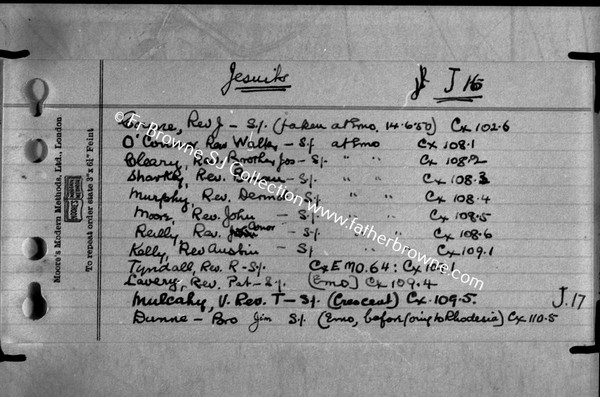 Jesuits J 16
Rev J - S.J. (taken at Emo, 14.6.50) Cx 102.6
O'Connor Rev Walter - S.J. at Emo Cx 108.1
Cleary, Rev. - S.J. " " Cx 108.2
Sharkey, Rev. - S.J. " " Cx 108.3
Murphy, Rev. Dermot S.J. " " Cx 108.4
Moore, Rev. John - S.J. " " Cx 108.5
Reilly, Rev. Conor - S.J. " " Cx 108.6
Kelly, Rev Austin - S.J. " " Cx 109.1
Tyndall, Rev. R - S.J. Cx EMO.64: Cx 109.1
Lavery, Rev. Pat - S.J. [Emo] Cx 109.4
Mulcahy, V. Rev. T - S.J. (Crescent) Cx. 109.5. J.17
Dunne - Bro Jim S.J. (Emo, before going to Rhodesia) Cx 110.5
Moore's Modern Methods, Ltd., London
To repeat order state 3" x 6½" Feint
© Fr Browne SJ Collection www.fatherbrowne.com